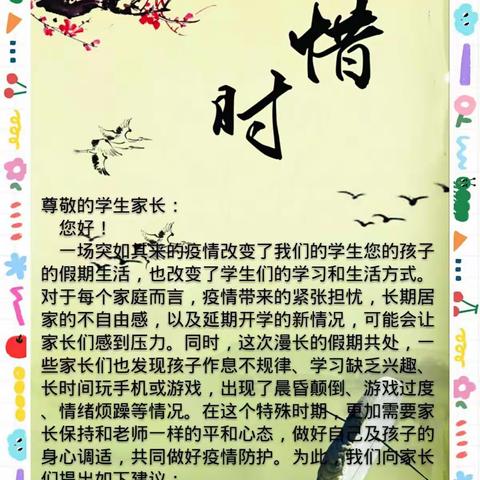 惜时
尊敬的学生家长：
您好！
一场突如其来的疫情改变了我们的学生您的孩子
的假期生活，也改变了学生们的学习和生活方式。
对于每个家庭而言，疫情带来的紧张担忧，长期居
家的不自由感，以及延期开学的新情况，可能会让
家长们感到压力。同时，这次漫长的假期共处，一
些家长们也发现孩子作息不规律、学习缺乏兴趣、
长时间玩手机或游戏，出现了晨昏颠倒、游戏过度
、情绪烦躁等情况。在这个特殊时期，更加需要家
长保持和老师一样的平和心态，做好自己及孩子的
身心调适，共同做好疫情防护。为此，我们向家长
们提出如下建议：